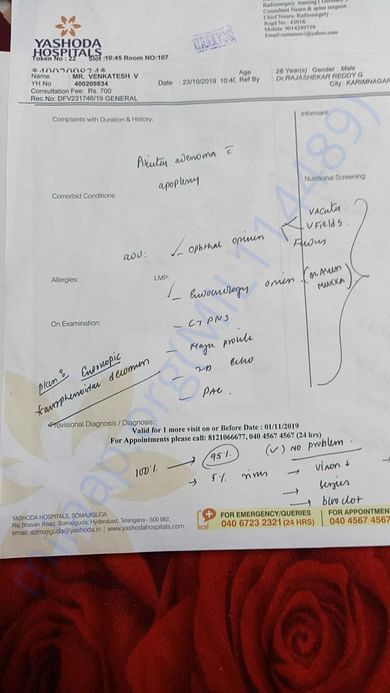 Radiosurgery training (Germany)
Consultant Neuro & spine surgeon
Chief Neuro Radiosurgery
Regd No : 43018,
Mobile: 9014249759
YASHODA
HOSPITALS
Token No : 22 Slot :10:45 Room NO:107
Name MR. VENKATESH V
Age 28 Year(s) Gender Male
YH No 400209834
Date : 23/10/2019 10:40
Ref By Dr.RAJASHEKAR REDDY G
Consultation Fee: Rs. 700
City: KARIMNAGAR
Rec.No: DFV231746/19 GENERAL
Complaints with Duration & History:
Informant:
Pituitary adenoma c̄
apoplexy
Nutritional Screening:
Comorbid Conditions:
adv: Ophthal opinion
Vacuity
V Fields
Fundus
Allergies:
LMP:
Endocrinology opinion
On Examination:
- CT PNS
- Major profile
- 2D Echo
- PAC
Plan: Endoscopic
transphenoidal decomm
Provisional Diagnosis / Diagnosis:
Valid for 1 more visit on or Before Date : 01/11/2019
For Appointments please call: 8121066677, 040 4567 4567 (24 hrs)
100% → 95% (V) no problem
→ 5% risks → vision ↓
→ blood clot
YASHODA HOSPITALS, SOMAJIGUDA
Raj Bhavan Road, Somajiguda, Hyderabad, Telangana - 500 082.
email: somajiguda@yashoda.in | www.yashodahospitals.com
FOR EMERGENCY/QUERIES
040 6723 2321 (24 HRS)
FOR APPOINTMENT
040 4567 4567
milaap.org(MIL114489)